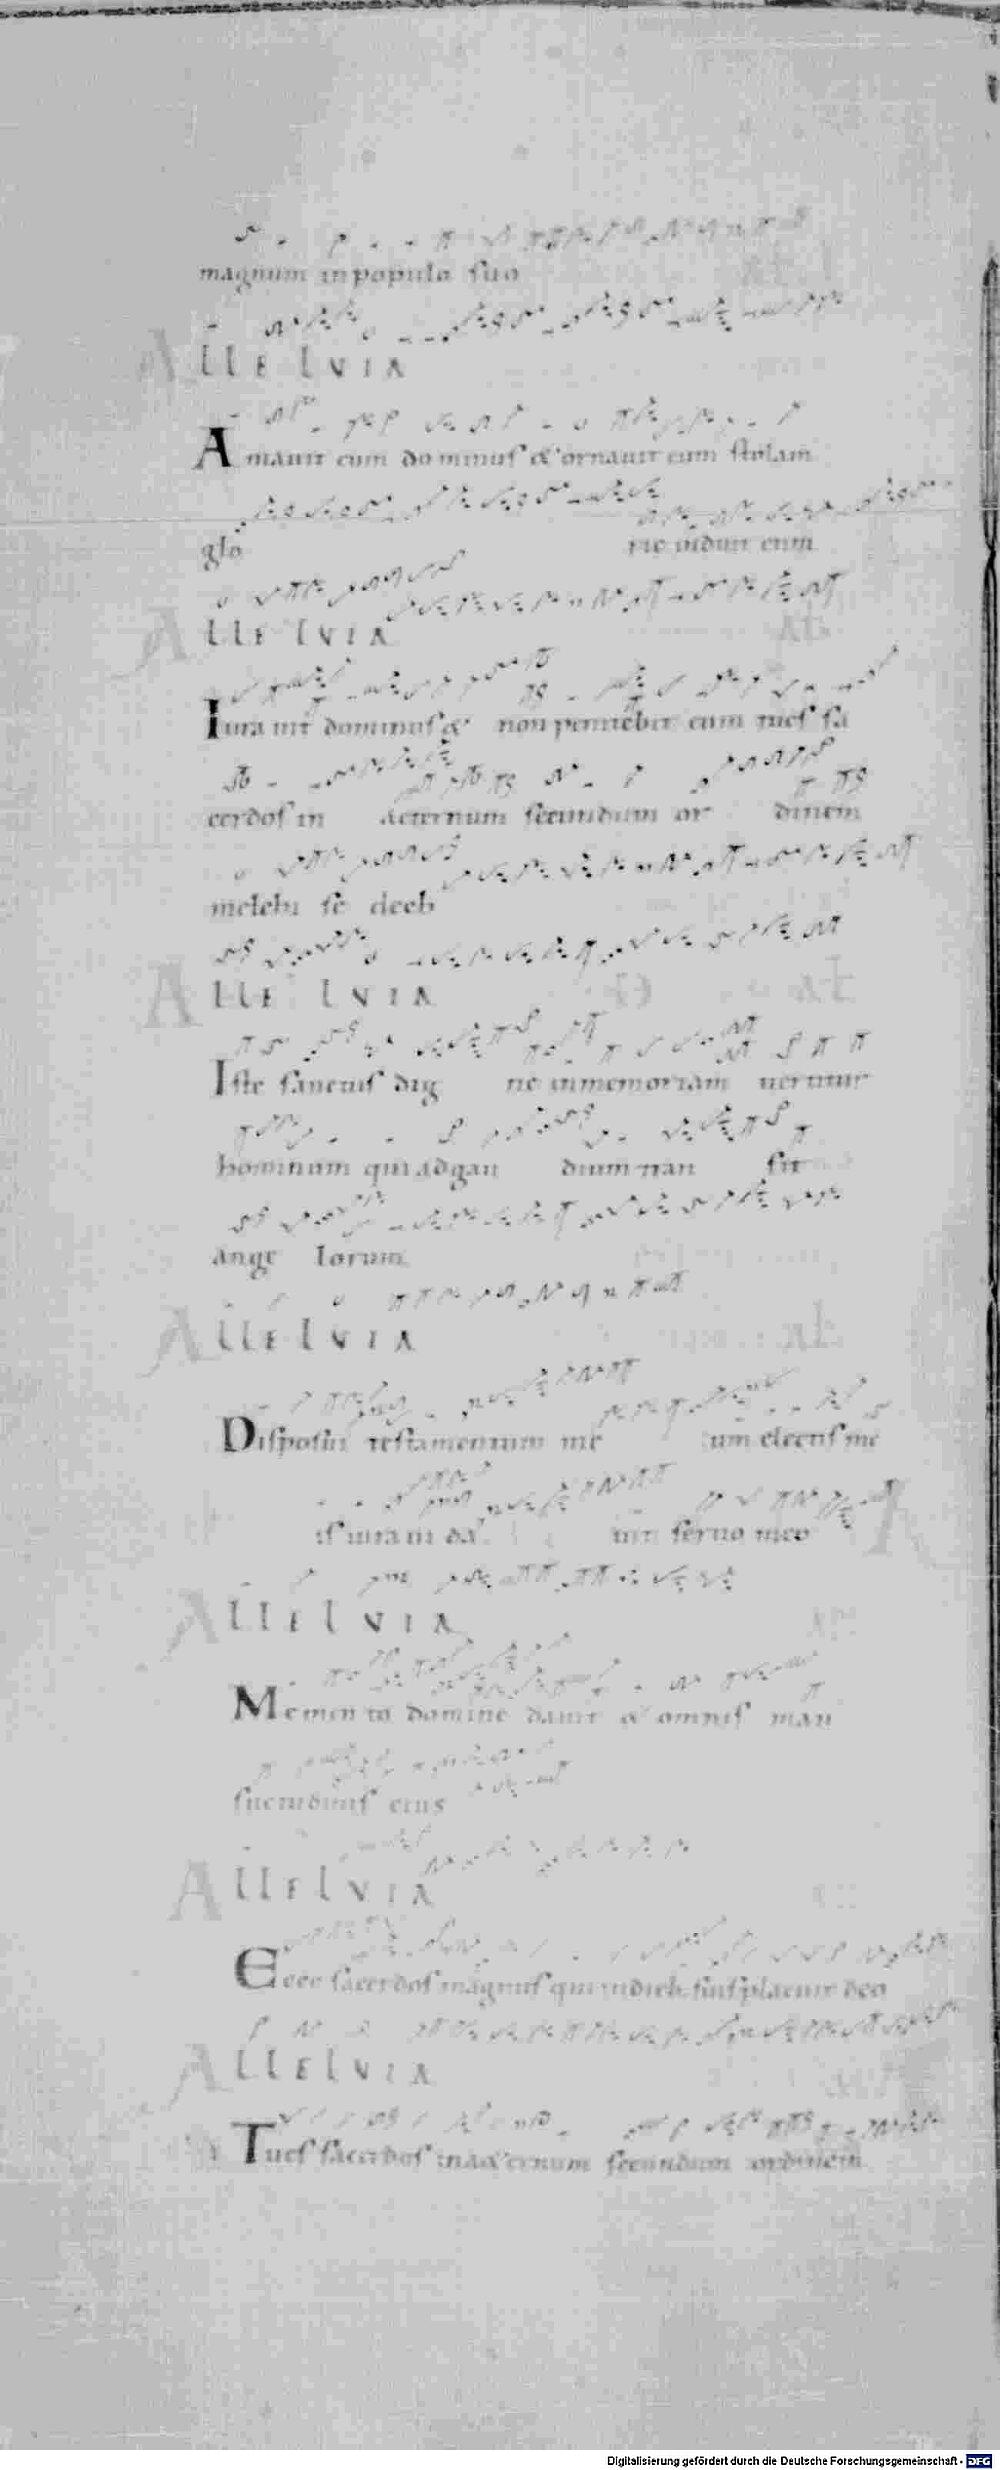 magnum in populo suo
Allelvia
Amauit eum dominus & ornauit eum stolam
glo riæ induit eum
Allelvia
Iura uit dominus & non penitebit eum tues sa
cerdos in aeternum secundum or dinem
melchi se dech
Allelvia
Iste sanctus dig ne in memoriam uertitur
hominum qui ad gau dium tran sit
ange lorum
Allelvia
Disposui testamentum me um electis me
is iuraui da uit seruo meo
Allelvia
Memento domine dauit & omnis man
suetudinis eius
Allelvia
Ecce sacerdos magnus qui in dieb. suis placuit deo
Allelvia
Tues sacerdos in aeternum secundum ordinem
Digitalisierung gefördert durch die Deutsche Forschungsgemeinschaft - DFG